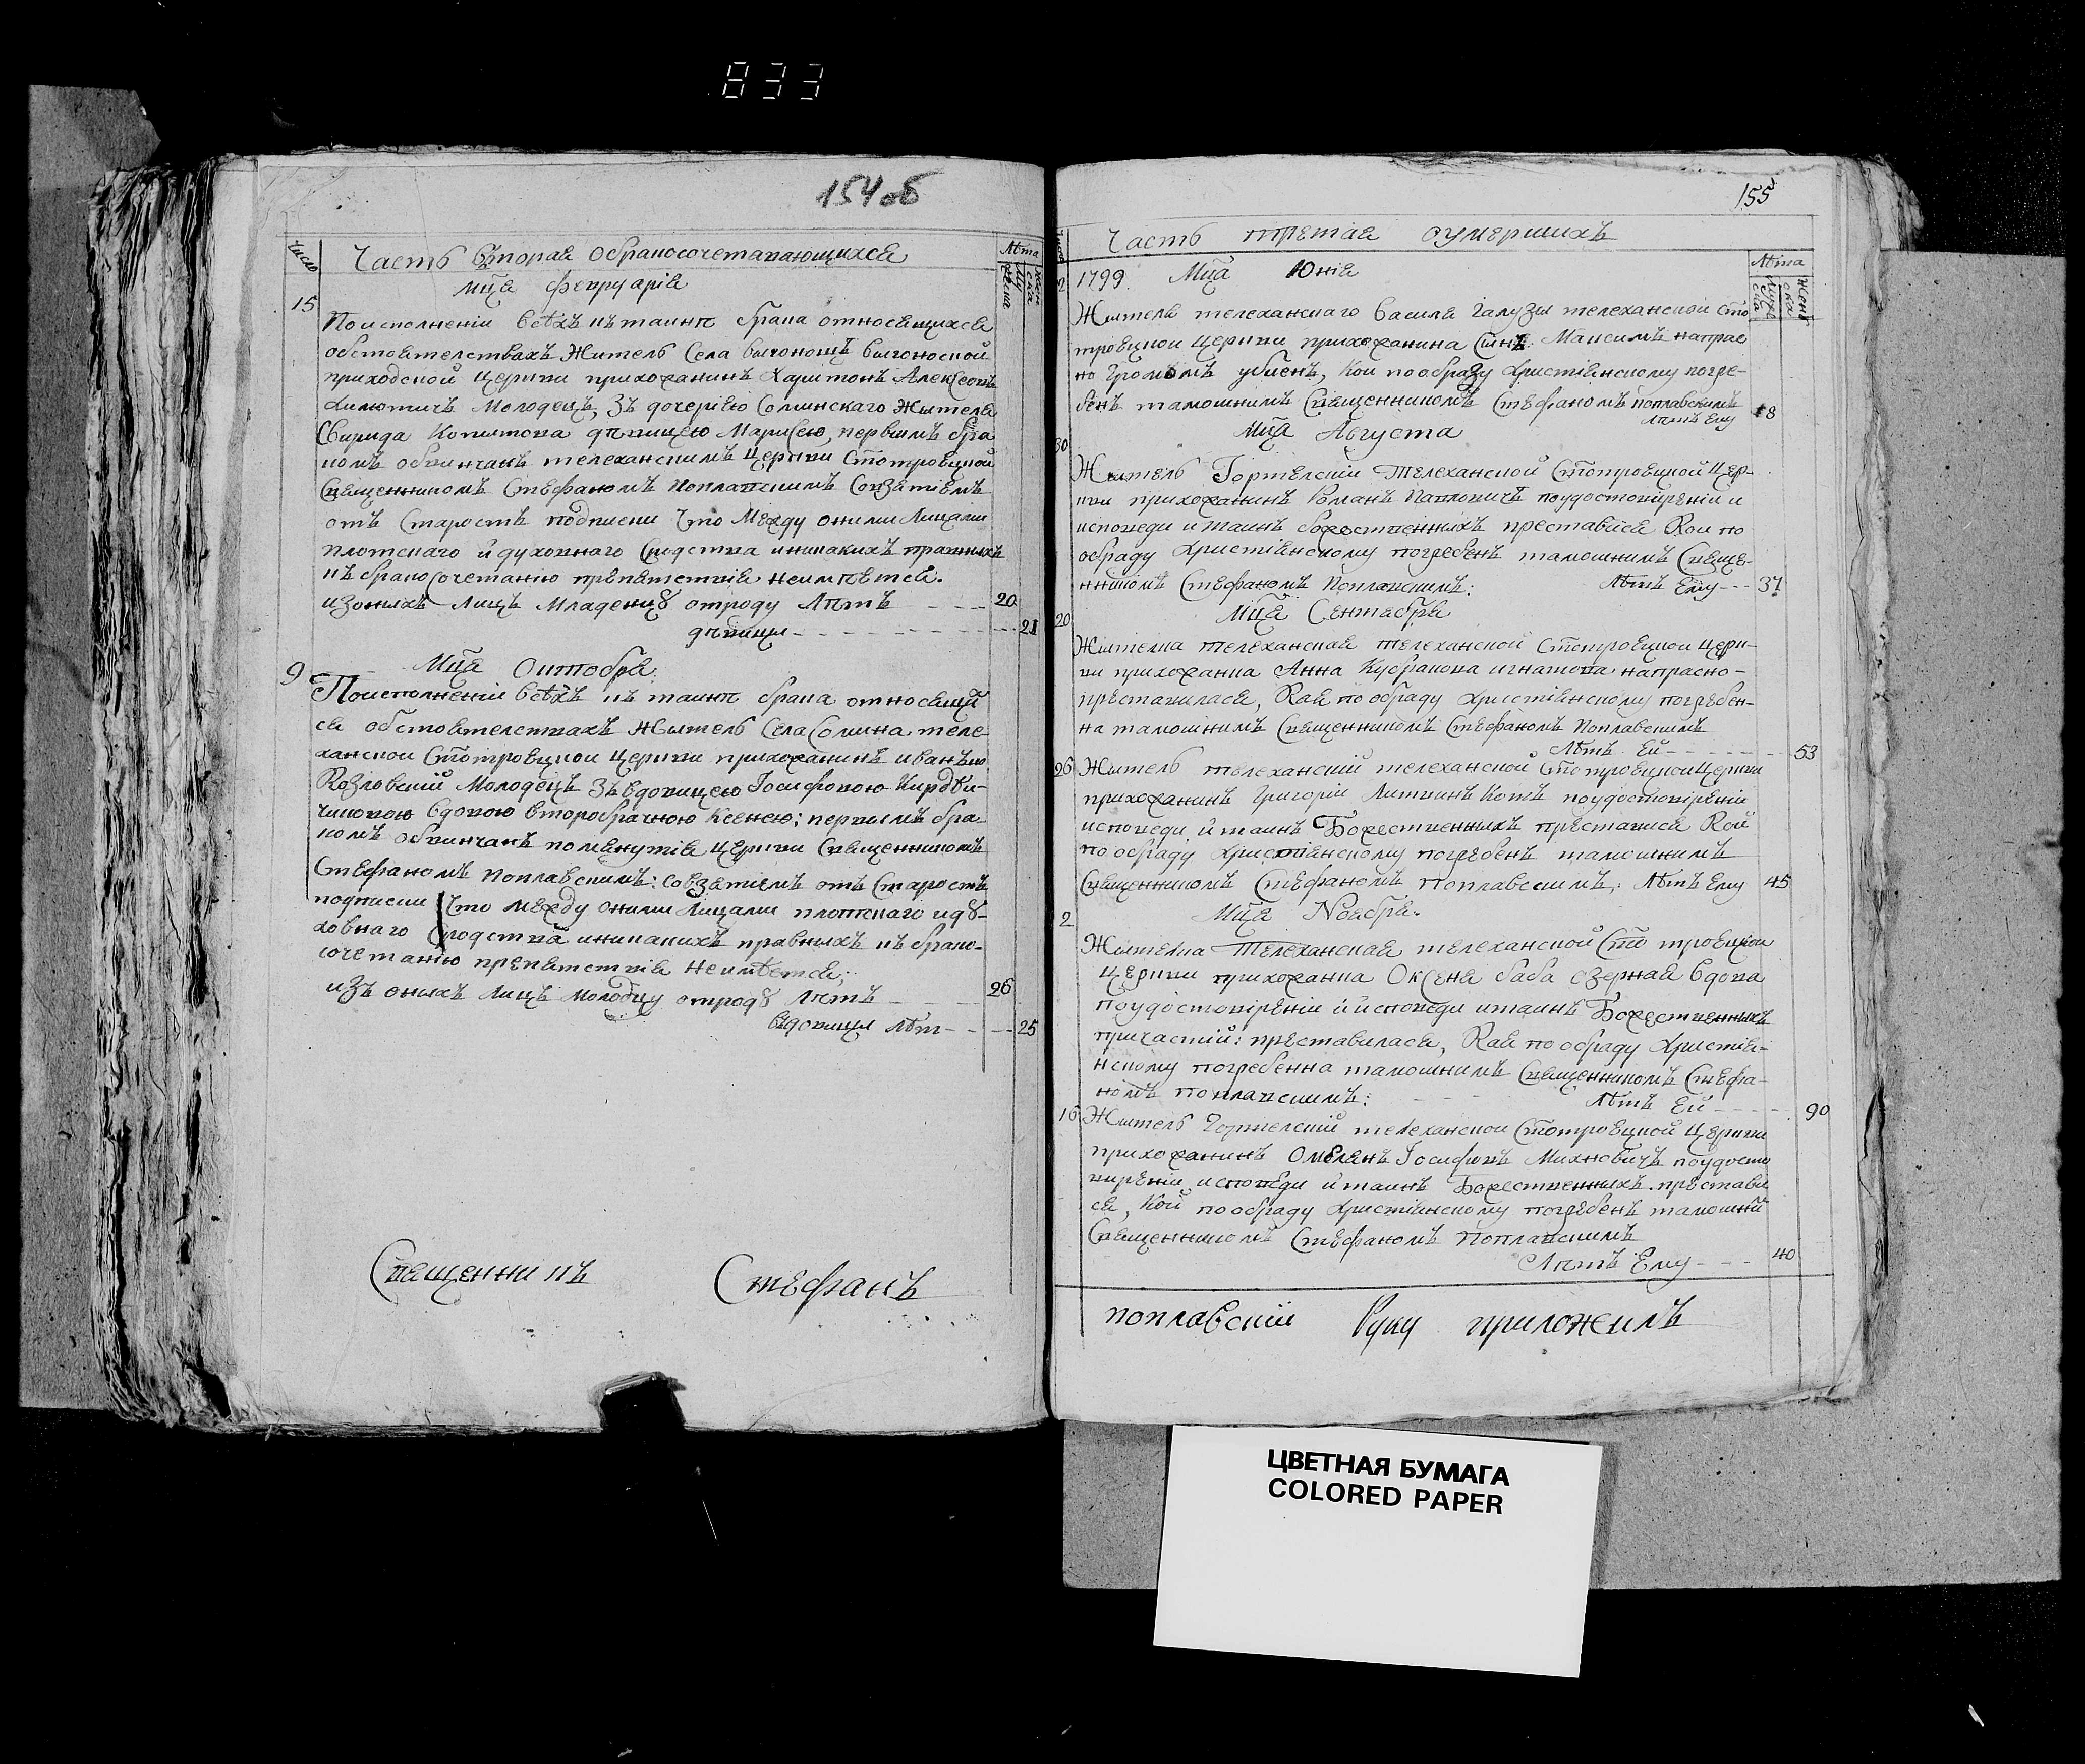 833
154 об
Число
Часть вторая обракосочетавающихся
Лѣта
Муж
Жен
ска
Мца февруаріа
15
Поисполненіи всѣхъ къ таинѣ брака относящихся
обстоятелствахъ Житель Села выгонощъ выгоноской
приходской Церкви прихожанинъ Харитонъ Алексеевъ
Молодецъ, зъ дочерію Соминскаго Жителя
Свирида Копытова дѣвицею Марисею, первымъ бра
комъ обвинчанъ телеханскимъ Церкви Стотроецкой
Священникомъ Стефаномъ Поплавскимъ Совзятіемъ
отъ Старостъ подписки Что Между оними Лицами
плотскаго и духовнаго Сродства иникакихъ правныхъ
къ бракосочетанію препятствія неимѣется.
изоныхъ Лицъ Младенцу отроду Лѣтъ - - - 20
дѣвицы - - - 21
9
Мца Октобра
Поисполненіи всѣхъ къ таинѣ брака относящи
ся обстоятелствахъ Житель Села Сомина теле
ханской Стотроецкой Церкви прихожанинъ иванъ
Козловскій Молодецъ зъ вдовицею Іосифовою
чиковою вдовою второбрачною Ксенею; первымъ бра
комъ обвинчанъ помянутія Церкви Священникомъ
Стефаномъ Поплавскимъ: Совзятіемъ отъ Старостъ
подписки Что между оними Лицами плотскаго иду-
ховнаго Сродства иникакихъ правныхъ къ брако-
сочетанію препятствія неимѣется;
изъ оныхъ Лицъ Молодцу отроду Лѣтъ - - - 26
вдовицы Лѣт - - - 25
Священникъ Стефанъ
155
Часть третая оумершихъ
Лѣта
Мужес
ска
Женс
ска
2
1799. Мца Юніа
Жителя телеханскаго Василя Галузы телеханской Сто
троецкой Церкви прихожанина Синъ Максимъ напрас
но Громомъ убіенъ, Кой пообразу Христіянскому погре-
бенъ тамошнимъ Священникомъ Стефаномъ Поплавскимъ
Лѣтъ Ему 18
Мца Августа
30
Житель Гортелскій Телеханской Стотроецкой Цер-
кви прихожанинъ Романъ Павловичъ поудостовѣреніи и
исповеди и Таинъ божественныхъ преставися Кои по
обряду Христіянскому погребенъ тамошнимъ Свяще-
нникомъ Стефаномъ Поплавскимъ: Лѣтъ Ему - - 37
Мца Сентабра
20
Жителка телеханская телеханской Стотроецкой Церк-
ви прихожанка Анна игнатова напрасно -
преставилася, Кая по обряду Христіянскому погребен-
на тамошнимъ Священникомъ Стефаномъ Поплавскимъ
Лѣтъ Ей - - - 53
26
Житель телеханскій телеханской Стотроецкой Церкви
прихожанинъ Григорій Литвинъ Котъ поудостовѣреніи
исповеди и таинъ Божественныхъ преставися Кой
по обряду Христіянскому погребенъ тамошнимъ
Священникомъ Стефаномъ Поплавскимъ: Лѣтъ Ему 45
2
Мца Ноабра.
Жителка Телеханская телеханской Сто троецкой
Церкви прихожанка Оксеня баба озерная вдова
поудостовѣреніи и исповеди итаинъ Божественныхъ
причастій: преставилася, Кая по обряду Христія-
нскому погребенна тамошнимъ Священникомъ Стефа-
номъ Поплавскимъ: Лѣтъ Ей - - - 90
16
Житель Гортелскій телеханской Стотроецкой Церкви
прихожанинъ Омелянъ Іосифовъ Михновичъ поудосто
вѣреніи исповеди и таинъ Божественныхъ преставы
ся, Кой пообряду Христіянскому погребенъ тамошни
Священникомъ Стефаномъ Поплавскимъ
Лѣтъ Ему - - - 40
поплавскій Руку приложилъ
ЦВЕТНАЯ БУМАГА
COLORED PAPER